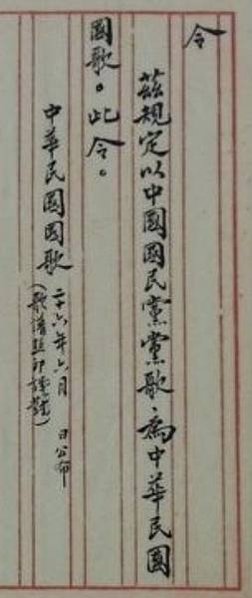 令
茲規定以中國國民黨黨歌、為中華民國
國歌。此令。
中華民國國歌
二十六年六月　日公布
（歌譜照印